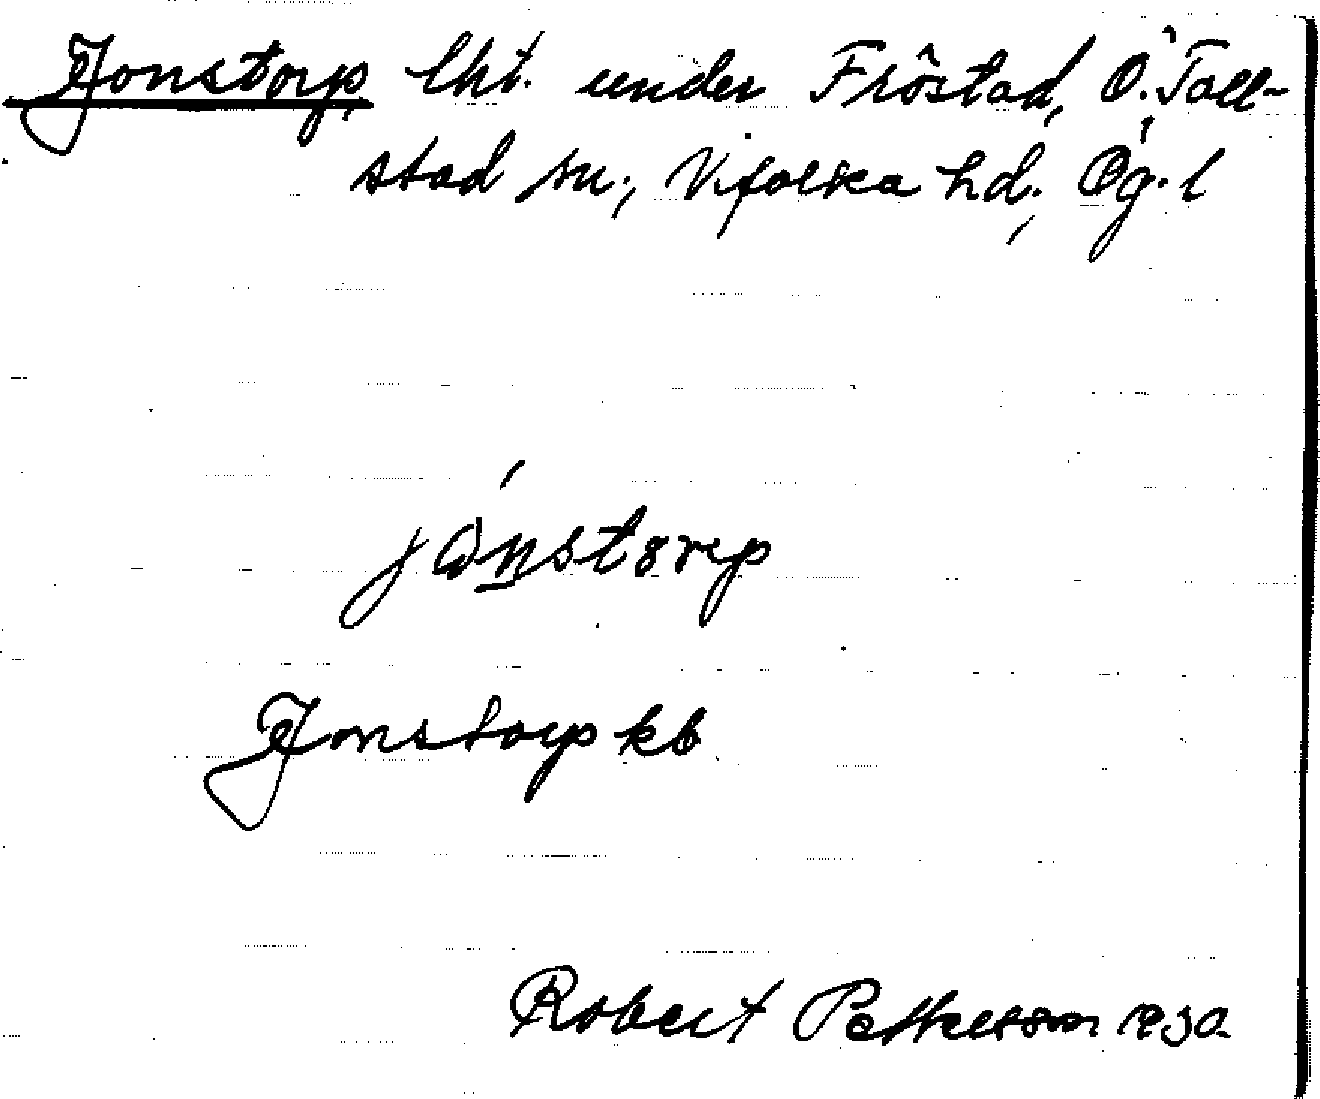 Jonstorp, lht. under Fröstad, Ö. Toll-
stad sn., Vifolka hd., Ög. l
jónstorp
Jonstorp kb
Robert Pettersson